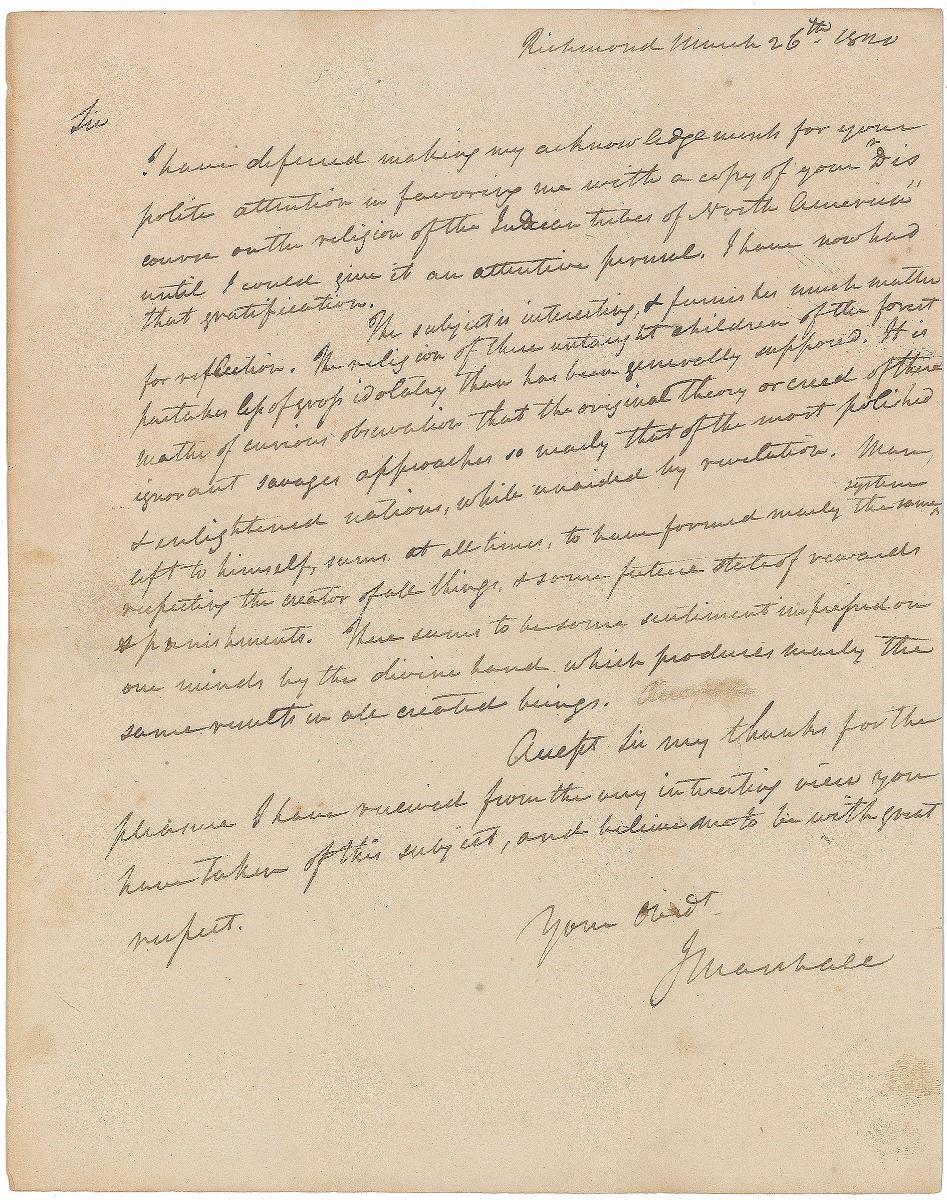 Richmond March 26th. 1820
Sir
I have deferred making my acknowledgements for your
polite attention in favoring me with a copy of your "Dis
course on the religion of the Indian tribes of North America"
until I could give it an attentive perusal. I have now had
that gratification.
The subject is interesting, & furnishes much matter
for reflection. The religion of these untaught children of the forest
partakes less of gross idolatry than has been generally supposed. It is
matter of curious observation that the original theory or creed of these
ignorant savages approaches so nearly that of the most polished
& enlightened nations, while unaided by revelation. Man,
left to himself, seems, at all times, to have formed nearly the same
system
respecting the creator of all things, & some future state of rewards
& punishments. There seems to be some sentiment impressed on
our minds by the divine hand which produces nearly the
same results in all created beings.
Accept Sir my thanks for the
pleasure I have received from the very interesting view you
have taken of this subject, and believe me to be with great
respect.
Your Obedt.
J Marshall